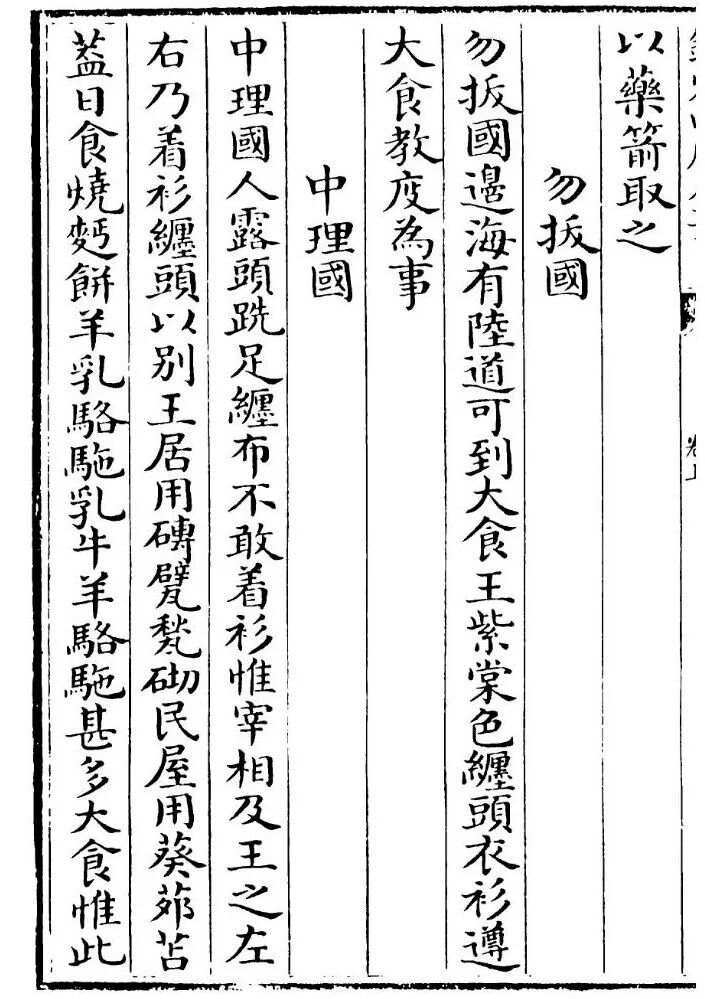 以藥箭取之
勿拔國
勿拔國邊海有陸道可到大食王紫棠色纏頭衣衫遵
大食教度為事
中理國
中理國人露頭跣足纏布不敢着衫惟宰相及王之左
右乃着衫纏頭以别王居用磚甓甃砌民屋用葵茆苫
葢日食燒麪餅羊乳駱駞乳牛羊駱駞甚多大食惟此